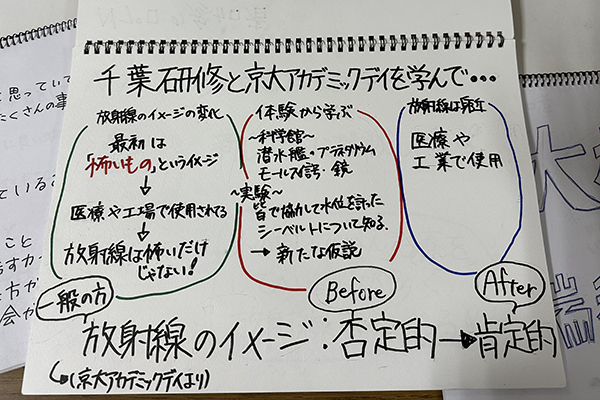 千葉研修と京大アカデミックデイを学んで・・・
放射線のイメージの変化
最初は
「怖いもの」というイメージ
↓
医療や工場で使用されてる
↓
放射線は怖いだけ
じゃない!
体験から学ぶ
～科学館～
潜水艦・プラネタリウム
モールス信号・鏡
～実験～
皆で協力して水位を計った
シーベルトについて知る.
→ 新たな仮説
放射線は身近
医療や
工業で使用
一般の方
Before
After
放射線のイメージ:否定的→肯定的
(京大アカデミックデイより)
と思ってい
たくさんの事
ている
こと